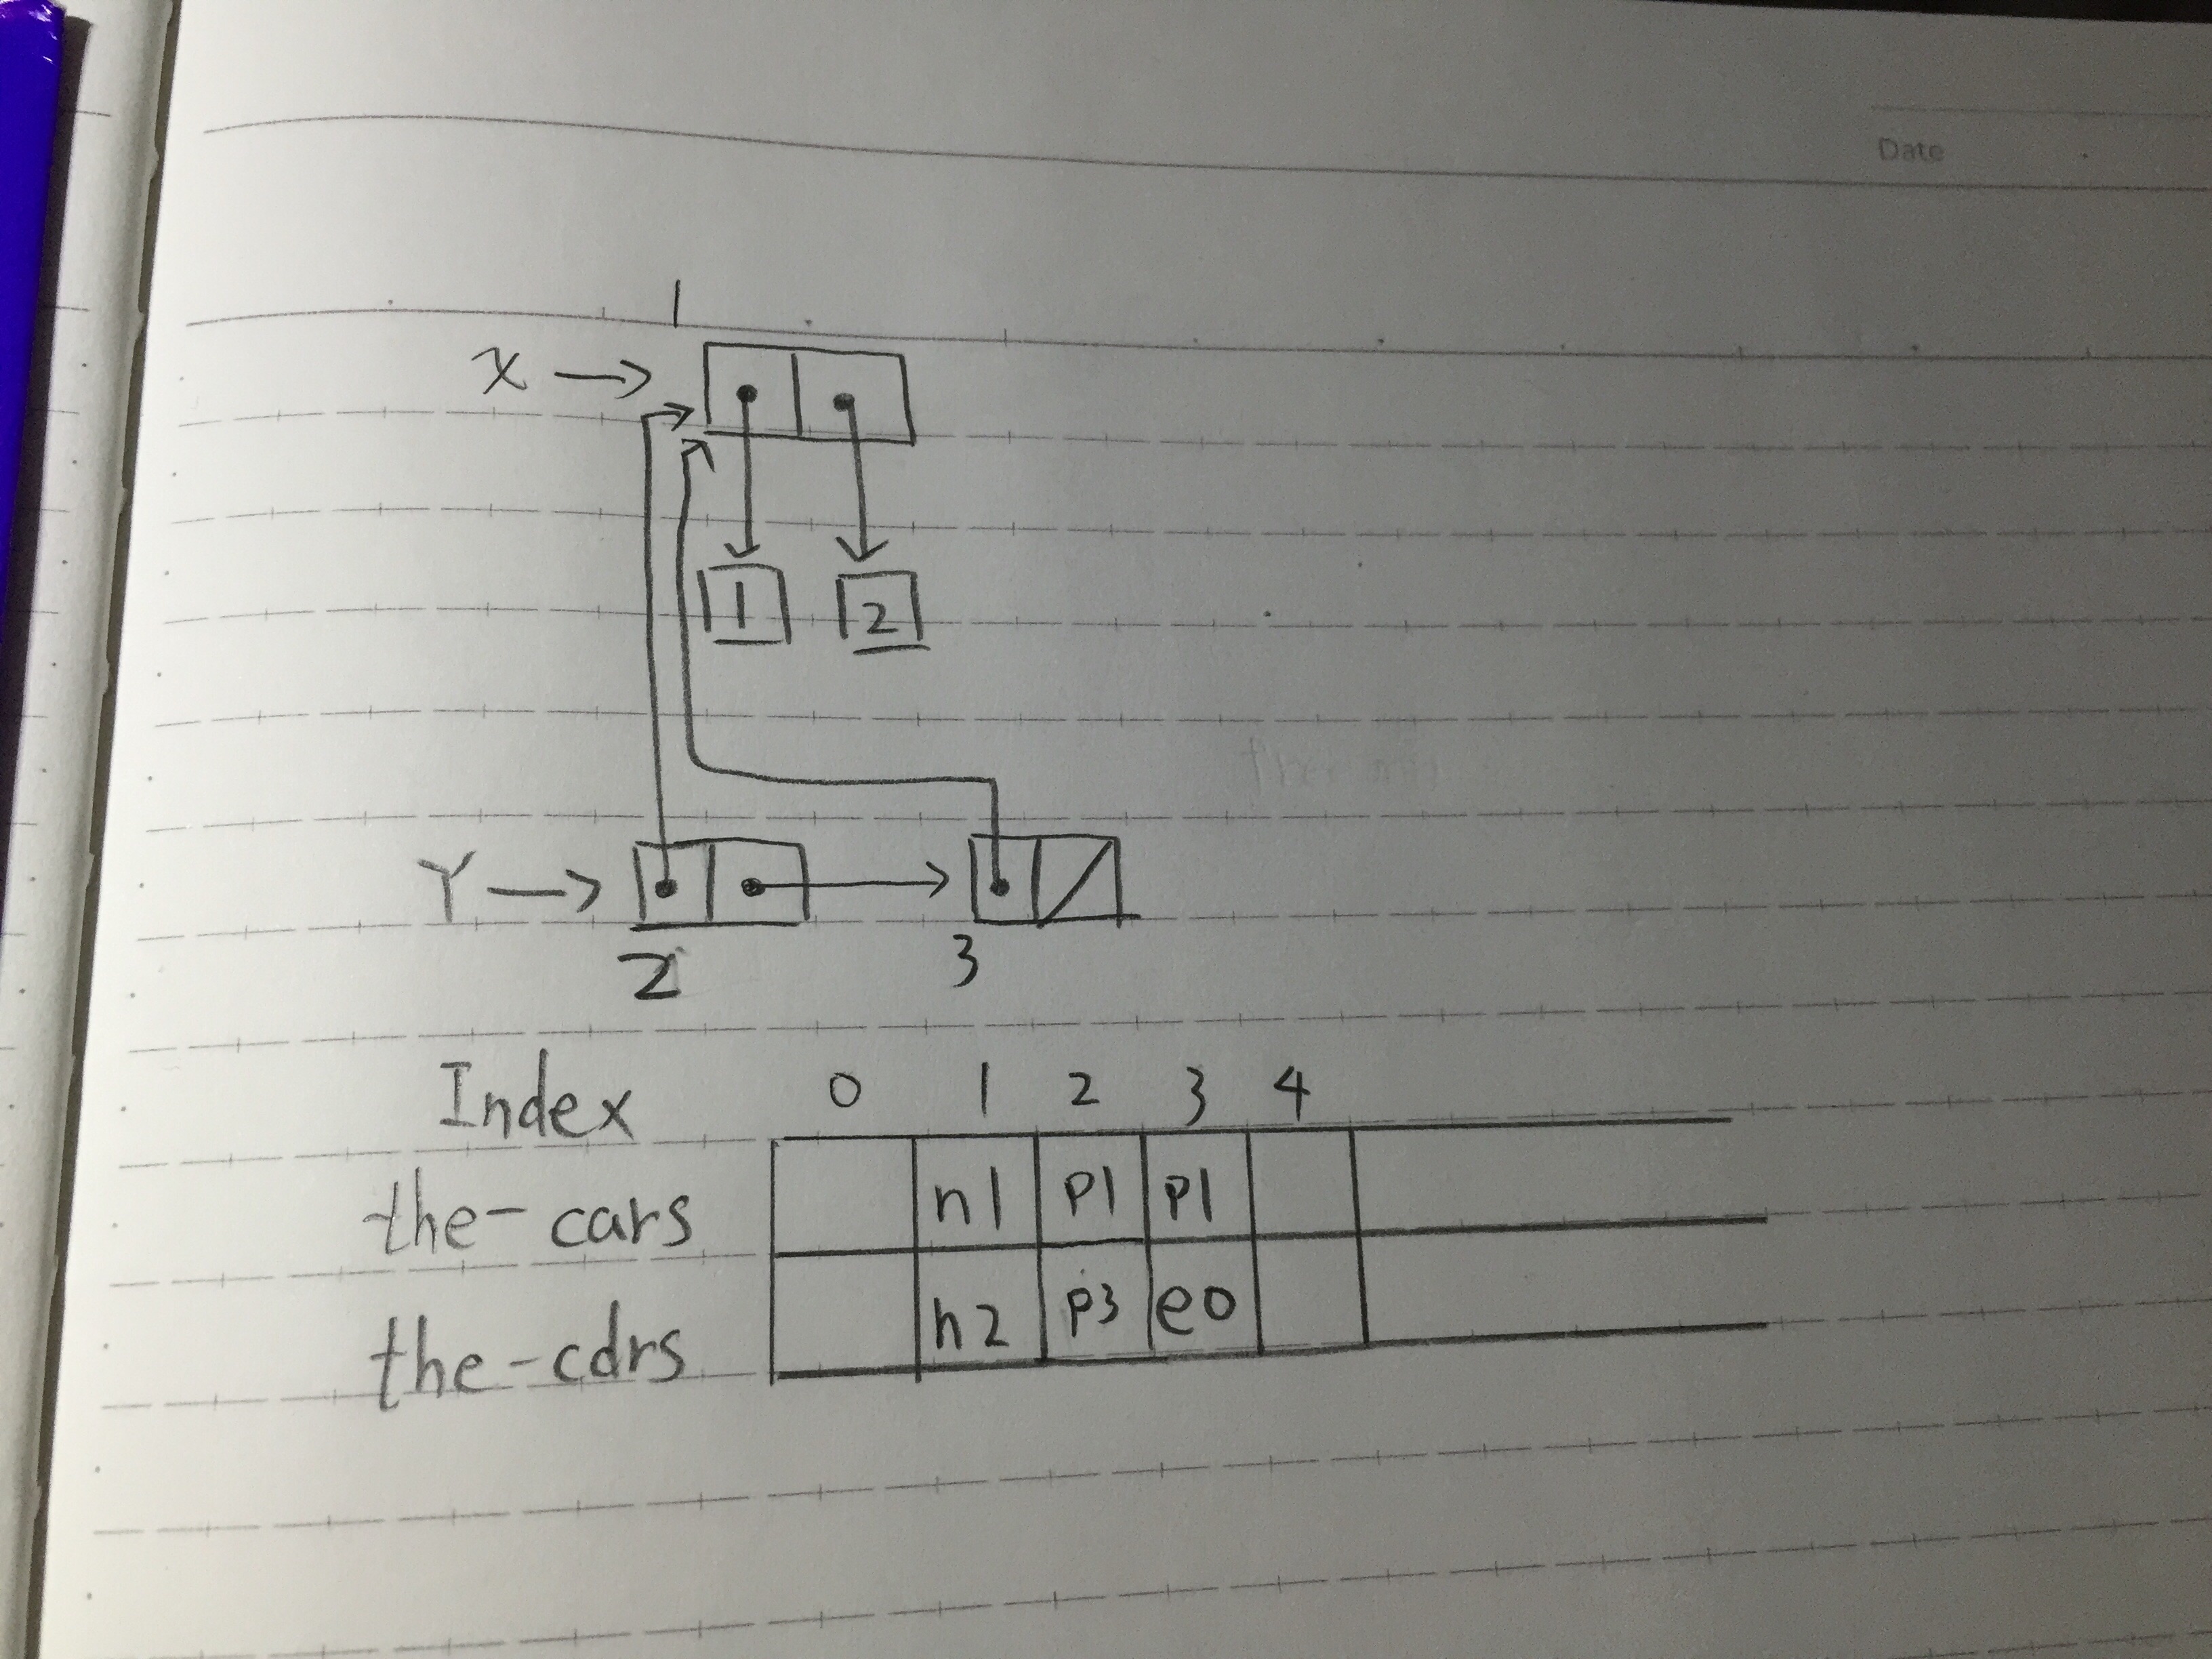 Date
1
x
1 2
Y
2 3
Index 0 1 2 3 4
the-cars n1 p1 p1
the-cdrs n2 p3 e0